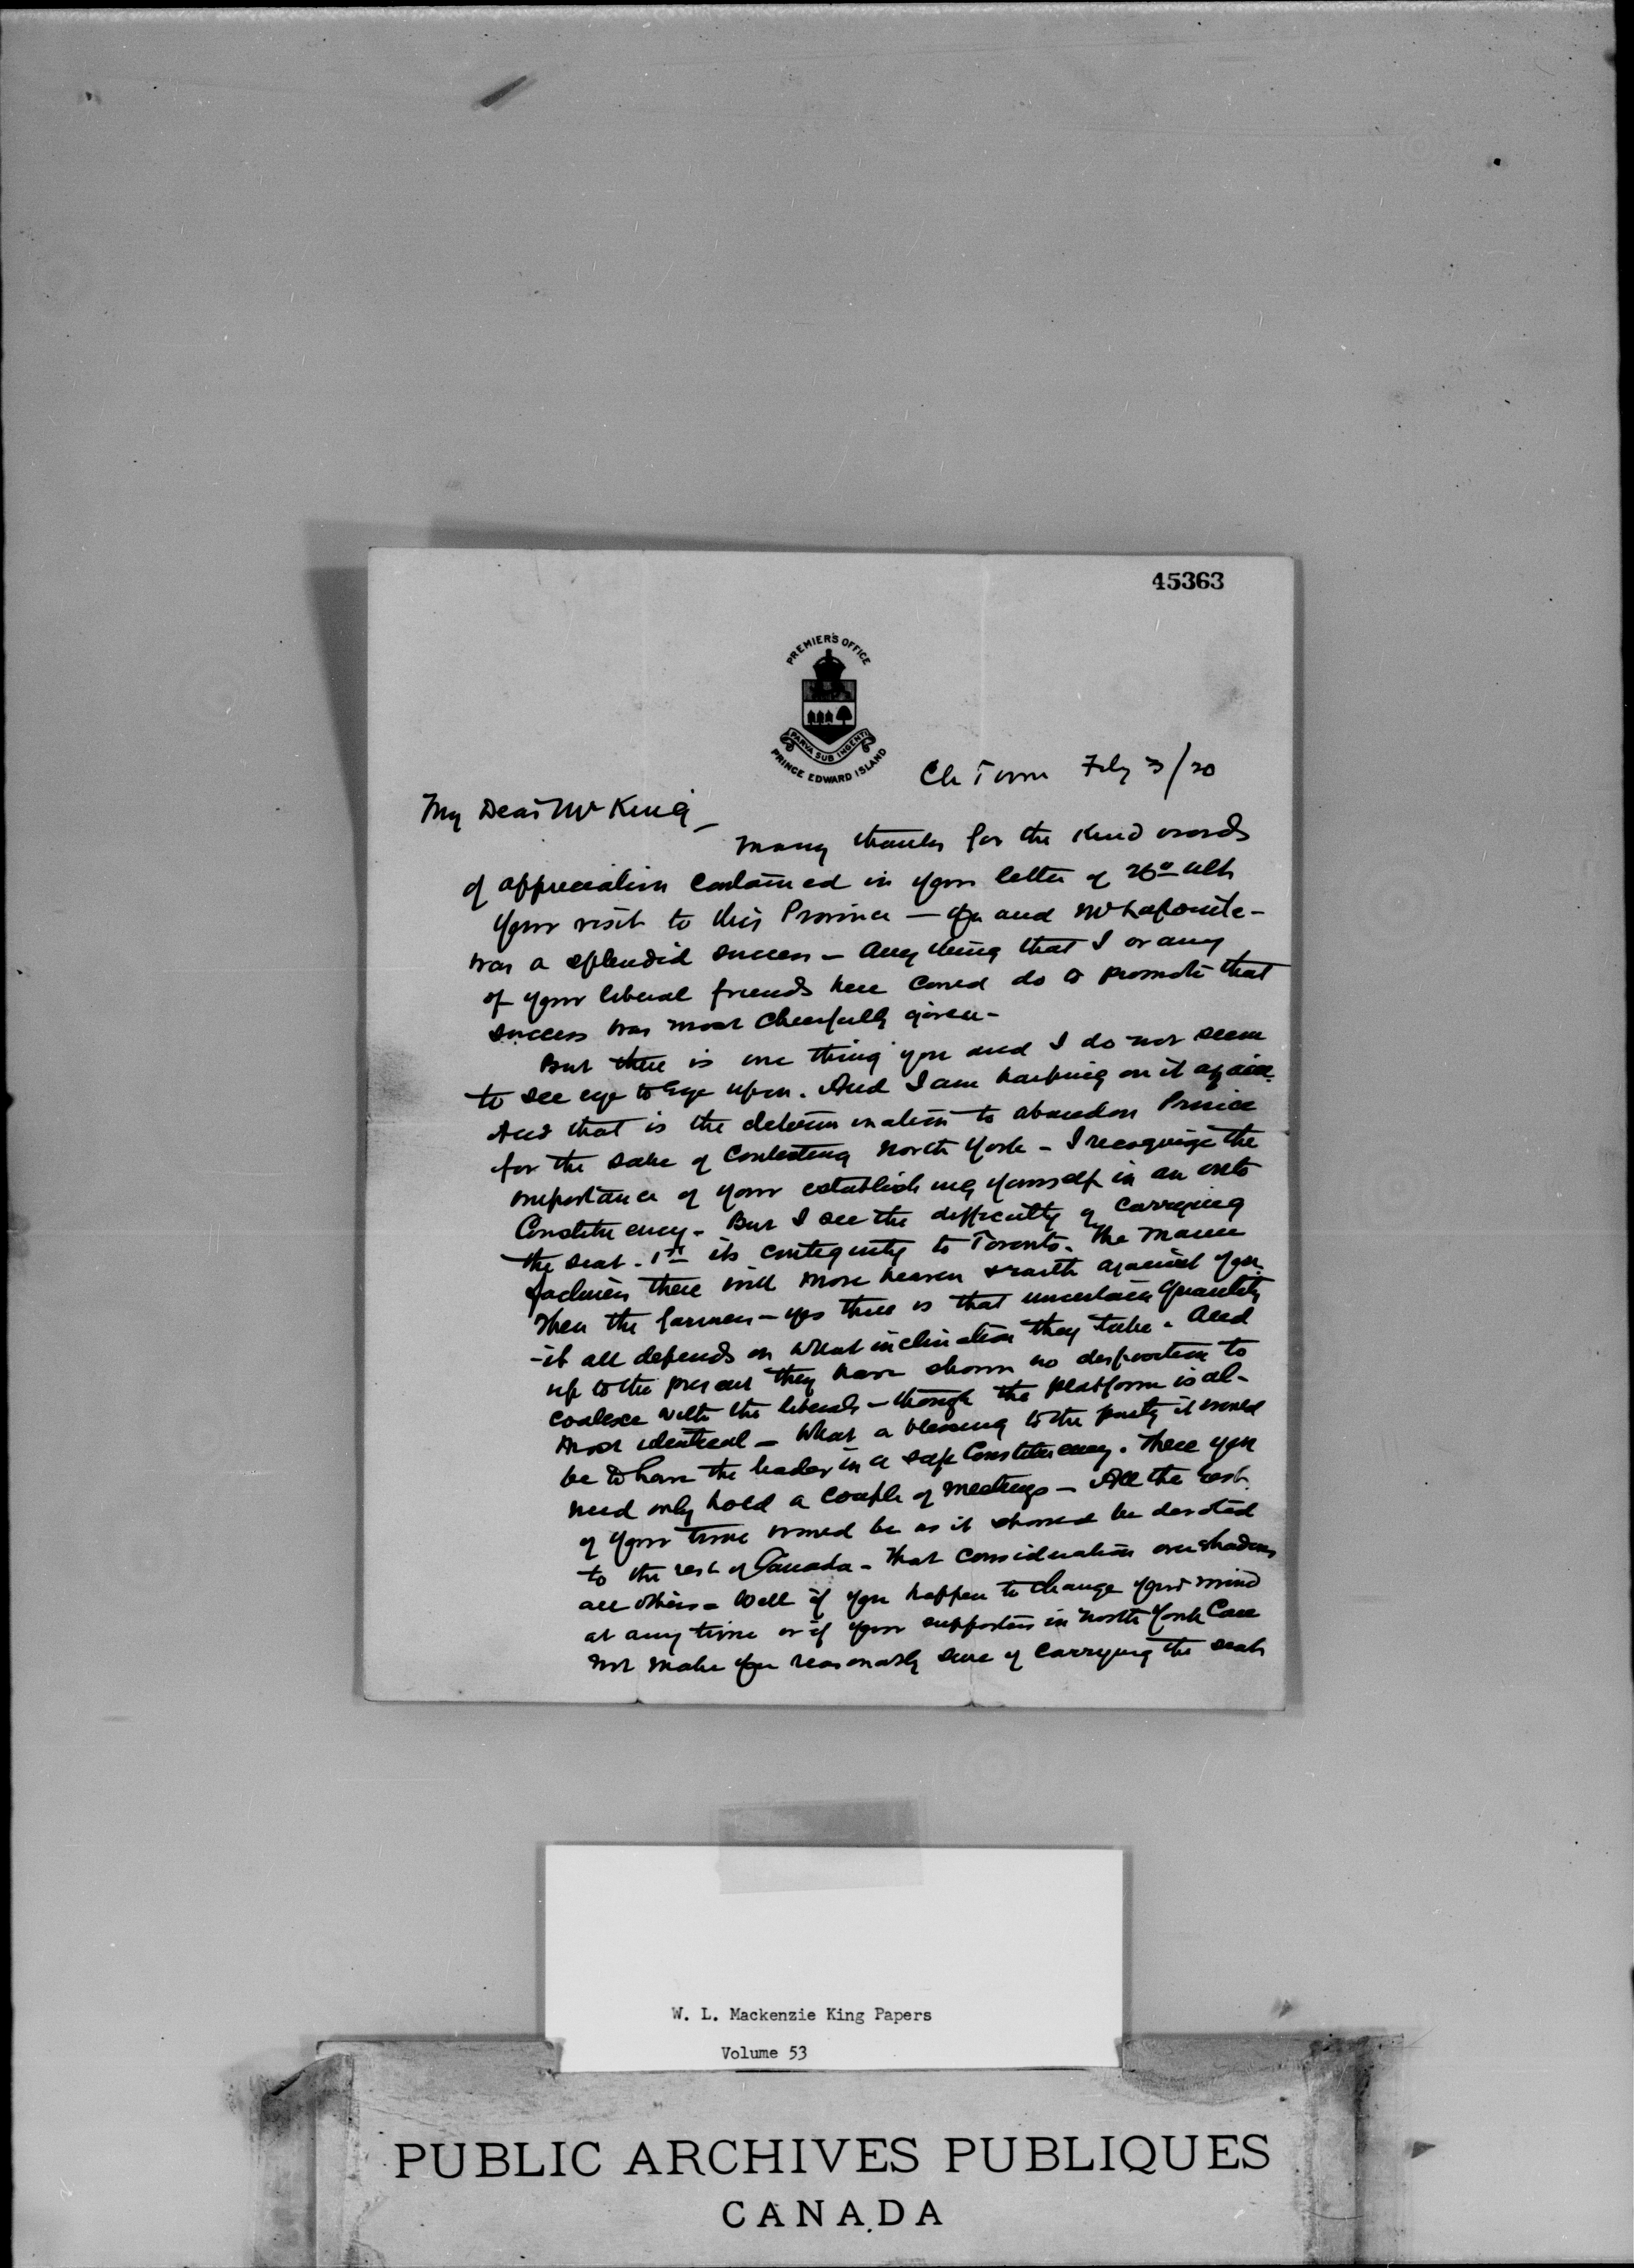 45363
PREMIER'S OFFICE
PARVA SUB INGENTI
PRINCE EDWARD ISLAND
Ch Town Feby 3/20
My Dear Mr King –
Many thanks for the kind words
of appreciation contained in your letter of 26th ult
Your visit to this Province — you and Mr Lapointe –
was a splendid success – Any thing that I or any
of your liberal friends here could do to promote that
success was most cheerfully given –
But there is one thing you and I do not seem
to see eye to eye upon. And I am harping on it again.
And that is the determination to abandon Prince
for the sake of contesting North York – I recognize the
importance of your establishing yourself in an Onto
Constituency – But I see the difficulty of carrying
the seat. 1st its contiguity to Toronto. The
there will move heaven & earth against you.
Then the farmers – yes there is that uncertain quantity
– it all depends on what inclination they take. And
up to the present they have shown no disposition to
coalesce with the liberals – though the platform is al-
most identical – What a blessing to the party it would
be to have the leader in a safe Constituency. There you
need only hold a couple of meetings – All the rest
of your time would be as it should be devoted
to the rest of Canada – That consideration overshadows
all others – Well if you happen to change your mind
at any time or if your supporters in North York can
not make you reasonably sure of carrying the seat
W. L. Mackenzie King Papers
Volume 53
PUBLIC ARCHIVES PUBLIQUES
CANADA